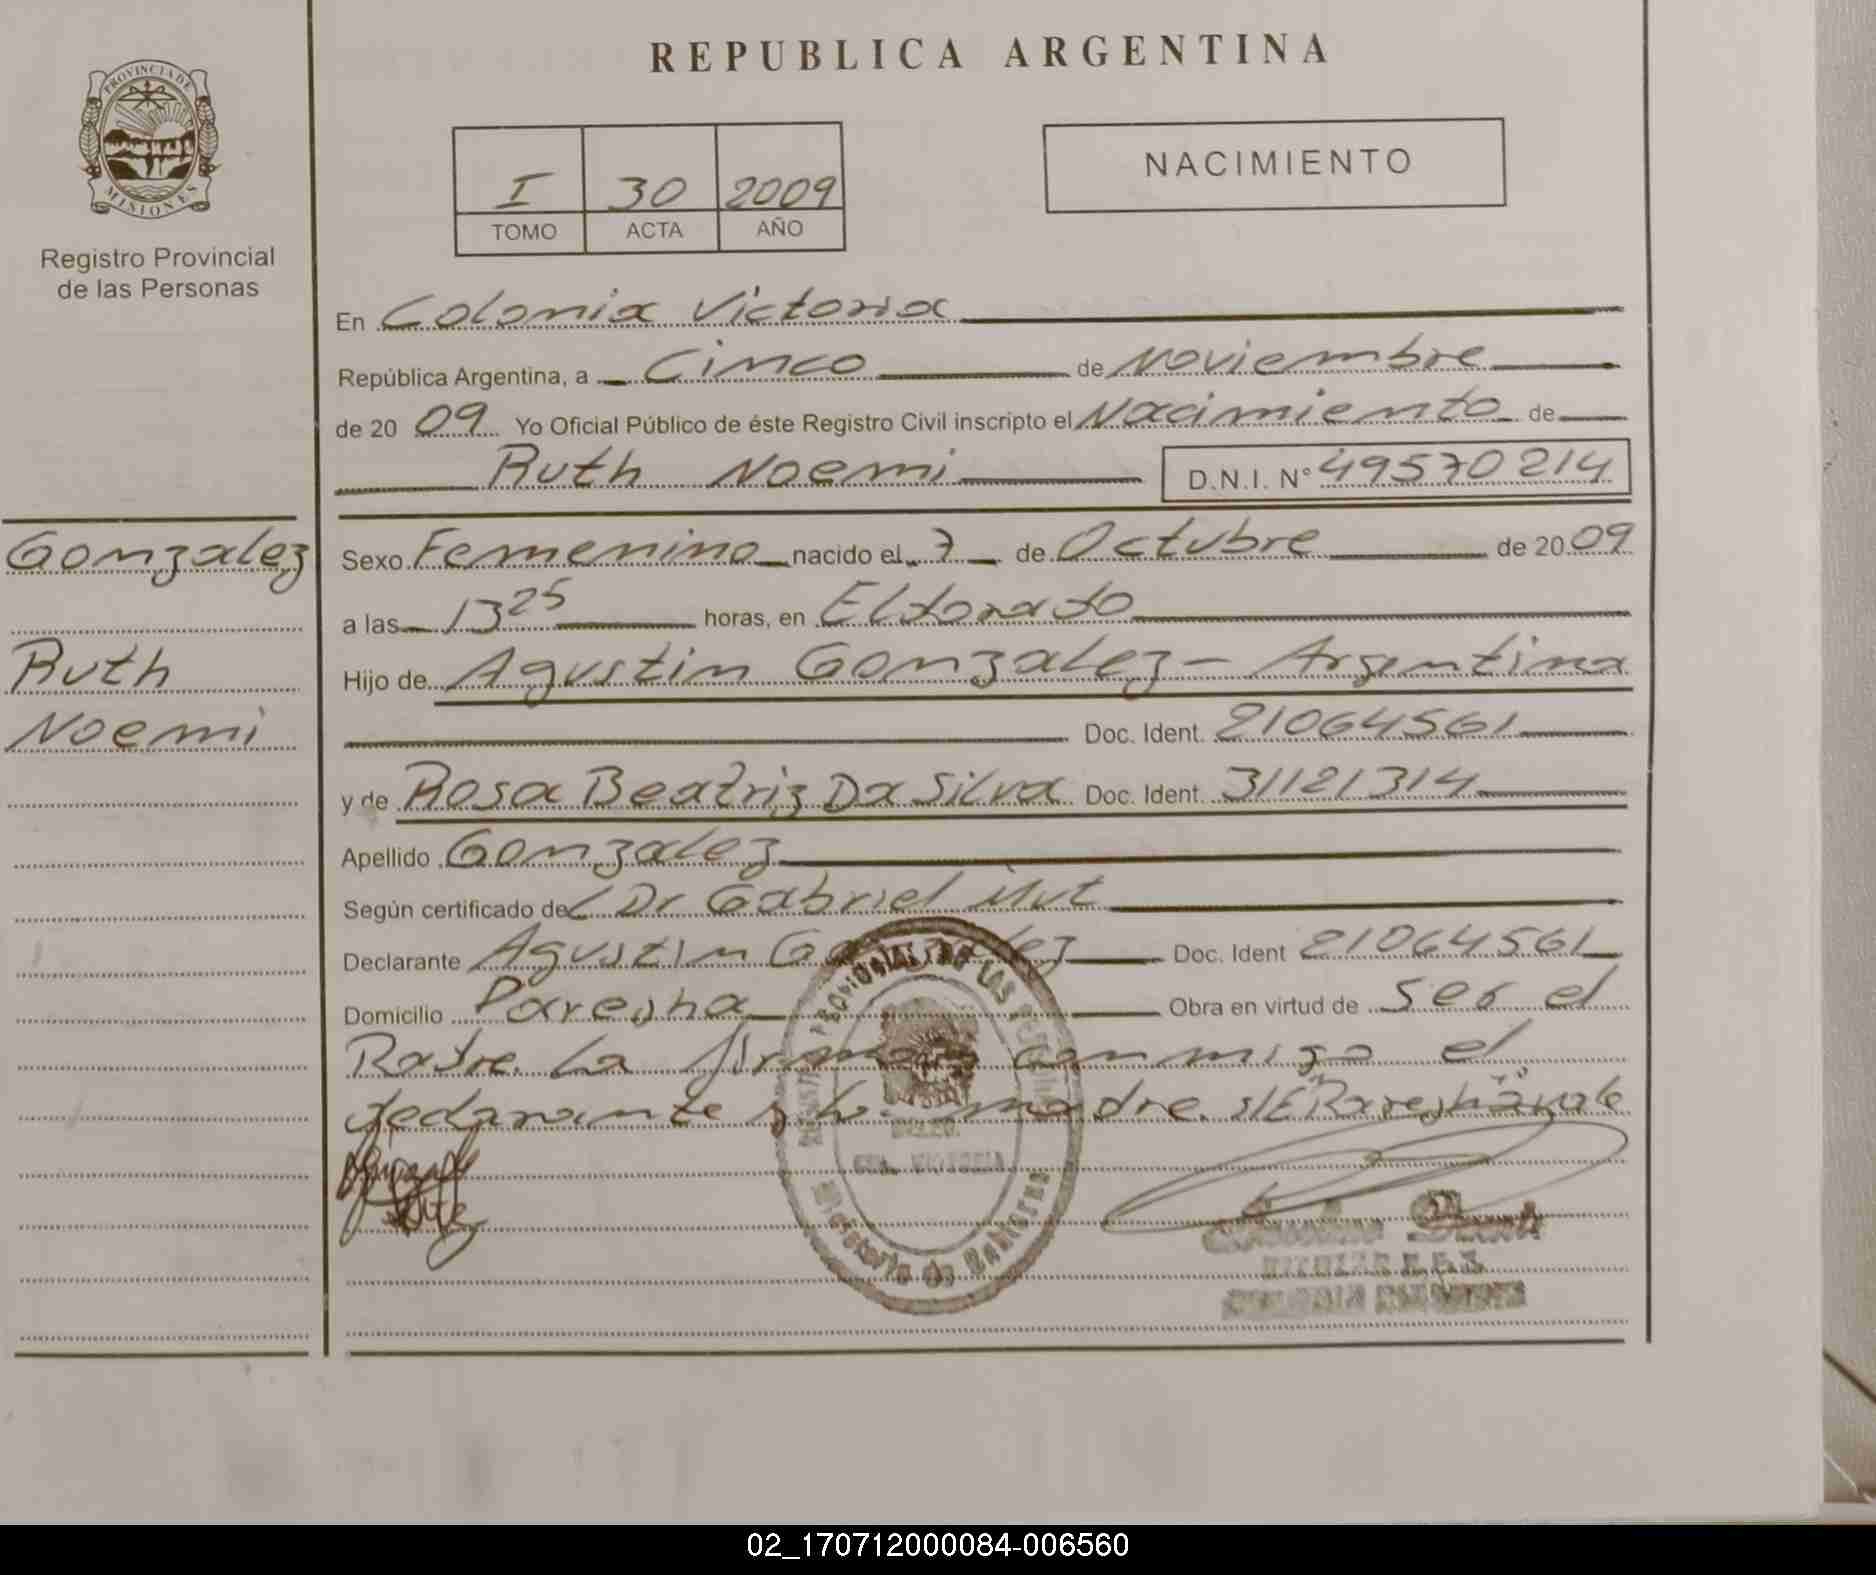 REPUBLICA ARGENTINA
PROVINCIA DE
MISIONES
Registro Provincial
de las Personas
I 30 2009
TOMO ACTA AÑO
NACIMIENTO
En Colonia Victoria
República Argentina, a Cinco de Noviembre
de 2009 Yo Oficial Público de éste Registro Civil inscripto el Nacimiento de
Ruth Noemi D.N.I. N° 49570214
Gonzalez
Ruth
Noemi
Sexo Femenino nacido el 7 de Octubre de 2009
a las 13 25 horas, en Eldorado
Hijo de Agustin Gonzalez - Argentina
Doc. Ident. 21064561
y de Rosa Beatriz Da Silva Doc. Ident. 31121314
Apellido Gonzalez
Según certificado de Dr Gabriel
Declarante Agustin Gonzalez Doc. Ident 21064561
Domicilio Obra en virtud de ser el
Padre. La firma conmigo el
declarante y la madre. vale
COL. VICTORIA
Ministerio de Gobierno
02_170712000084-006560